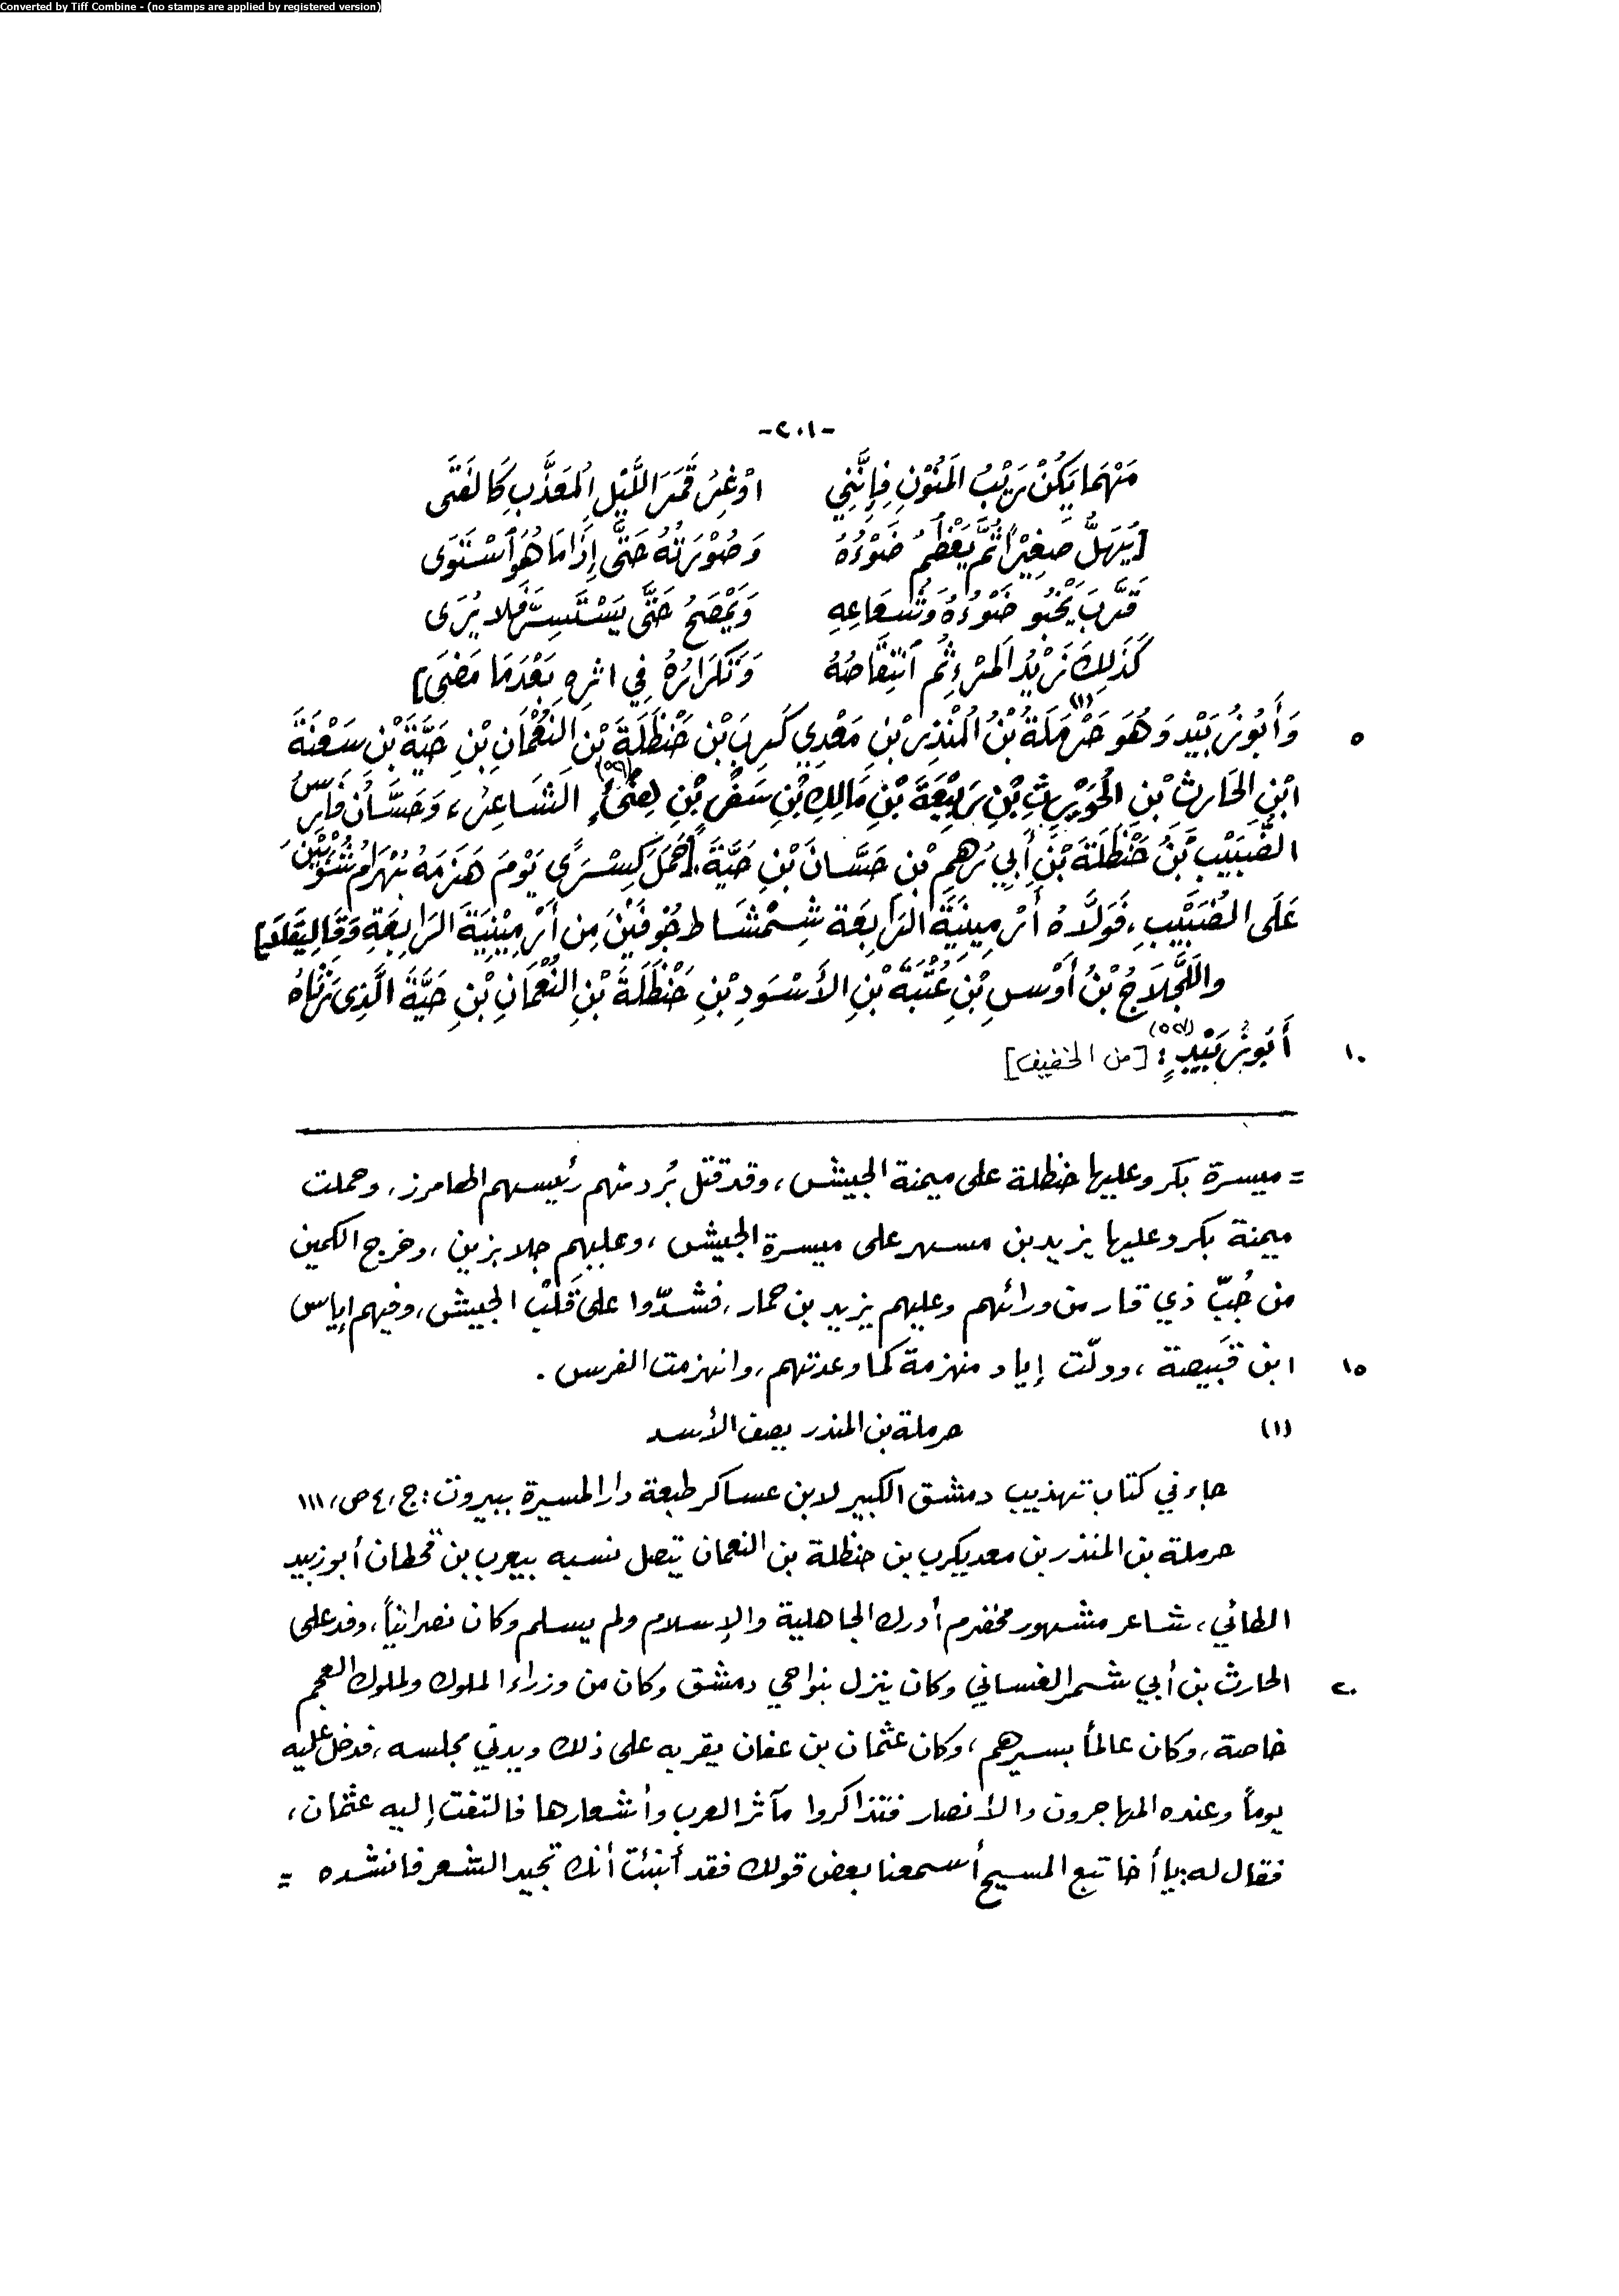 Converted by Tiff Combine - (no stamps are applied by registered version)
-٢٠١-
مَهْمَا يَكُنْ رَيْبُ المَنُوْنِ فَإِنَّنِي اوْغِرُ قَمَرَ اللَّيْلِ المُعَذَّبِ كَالفَتَى
[يُهَلُّ صَغِيْرًا ثُمَّ يَعْظُمُ ضَوْءُهُ وَصُوْرَتُهُ حَتَّى إِذَا مَا هُوَ اسْتَوَى
قَرَّبَ يَخْبُو ضَوْءُهُ وَشُعَاعِهِ وَيَمْصَحُ حَتَّى يَسْتَسِرَّ فَلا يُرَى
كَذَلِكَ زَيْدُ المَرْءِ ثُم انْتِقَاصُهُ وَتَكْرَارُهُ فِي اثرِهِ بَعْدَمَا مَضَى]
٥ وَأَبُو زُبَيْد وَهُوَ حَرْمَلَةُ (١) بْنُ المُنْذِرِ بْنِ مَعْدِي كَرِبَ بْن حَنْظَلَةَ بْنِ النُعْمَانِ بْنِ حَيَّةَ بْنِ سَعْنَةَ
ابْنِ الحَارِثِ بْنِ الحُوَيْرِثِ بْنِ رَبِيْعَةَ بْنِ مَالِكِ بْنِ سَفْرِ بْنِ هِنْيءٍ الشَاعِرُ، وَحَسَّانُ فَارِسُ
الضُّبَيْبِ بْنُ حَنْظَلَةَ بْنِ أَبِي رُهْمِ بْنِ حَسَّانَ بْنِ حَيَّةَ. [حَمَلَ كِسْرَى يَوْمَ هَزَمَهُ بُهْرَامُ شُوْبِيْنَ
عَلَى الضُبَيْبِ، فَوَلَّاهُ أَرْمِيِنِيَةَ الرَابِعَة شِمْشَاط مِن أَرْمِيْنِيَةَ الرَابِعَةِ
واللَّجْلَاجُ بْنُ أَوْسِ بْنِ عُتْبَةَ بْنِ الأَسْوَدِ بْنِ حَنْظَلَةَ بْنِ النُعْمَانِ بْنِ حَيَّةَ الَّذِي رَثَاهُ
١٠ أَبُو زُبَيْدٍ: [من الخفيف]
= ميسرة بكر وعليها حنظلة على ميمنة الجيش، وقد قتل بُرد منهم رئيسهم الهامرز، وحملت
ميمنة بكر وعليها يزيد بن مسهر على ميسرة الجيش، وعليهم جلابزين، وخرج الكمين
من جُبّ ذي قار من ورائهم وعليهم يزيد بن حمار، فشدّوا على قَلْب الجيش، وفيهم إياس
١٥ ابن قَبيصة، وولّت إياد منهزمة كما وعدتهم، وانهزمت الفرس.
(١) حرملة بن المنذر يصف الأسد
جاء في كتاب تهذيب دمشق الكبير لابن عساكر طبعة دار المسيرة ببيروت: ج، ٤ ص، ١١١
حرملة بن المنذر بن معد يكرب بن حنظلة بن النعمان يتصل نسبه بيعرب بن قحطان أبو زبيد
الطائي، شاعر مشهور مخضرم أدرك الجاهلية والإسلام ولم يسلم وكان نصرانياً، وفد على
٢٠ الحارث بن أبي شمر الغساني وكان ينزل بنواحي دمشق وكان من وزراء الملوك ولملوك العجم
خاصة، وكان عالمأ بسيرهم، وكان عثمان بن عفان يقربه على ذلك ويدني مجلسه، فدخل عليه
يوماً وعنده المهاجرون والأنصار فتذاكروا مآثر العرب وأشعارها فالتفت إليه عثمان،
فقال له: يا أخا تبع المسيح أسمعنا بعض قولك فقد أنبئت أنك تجيد الشعر فانشده =